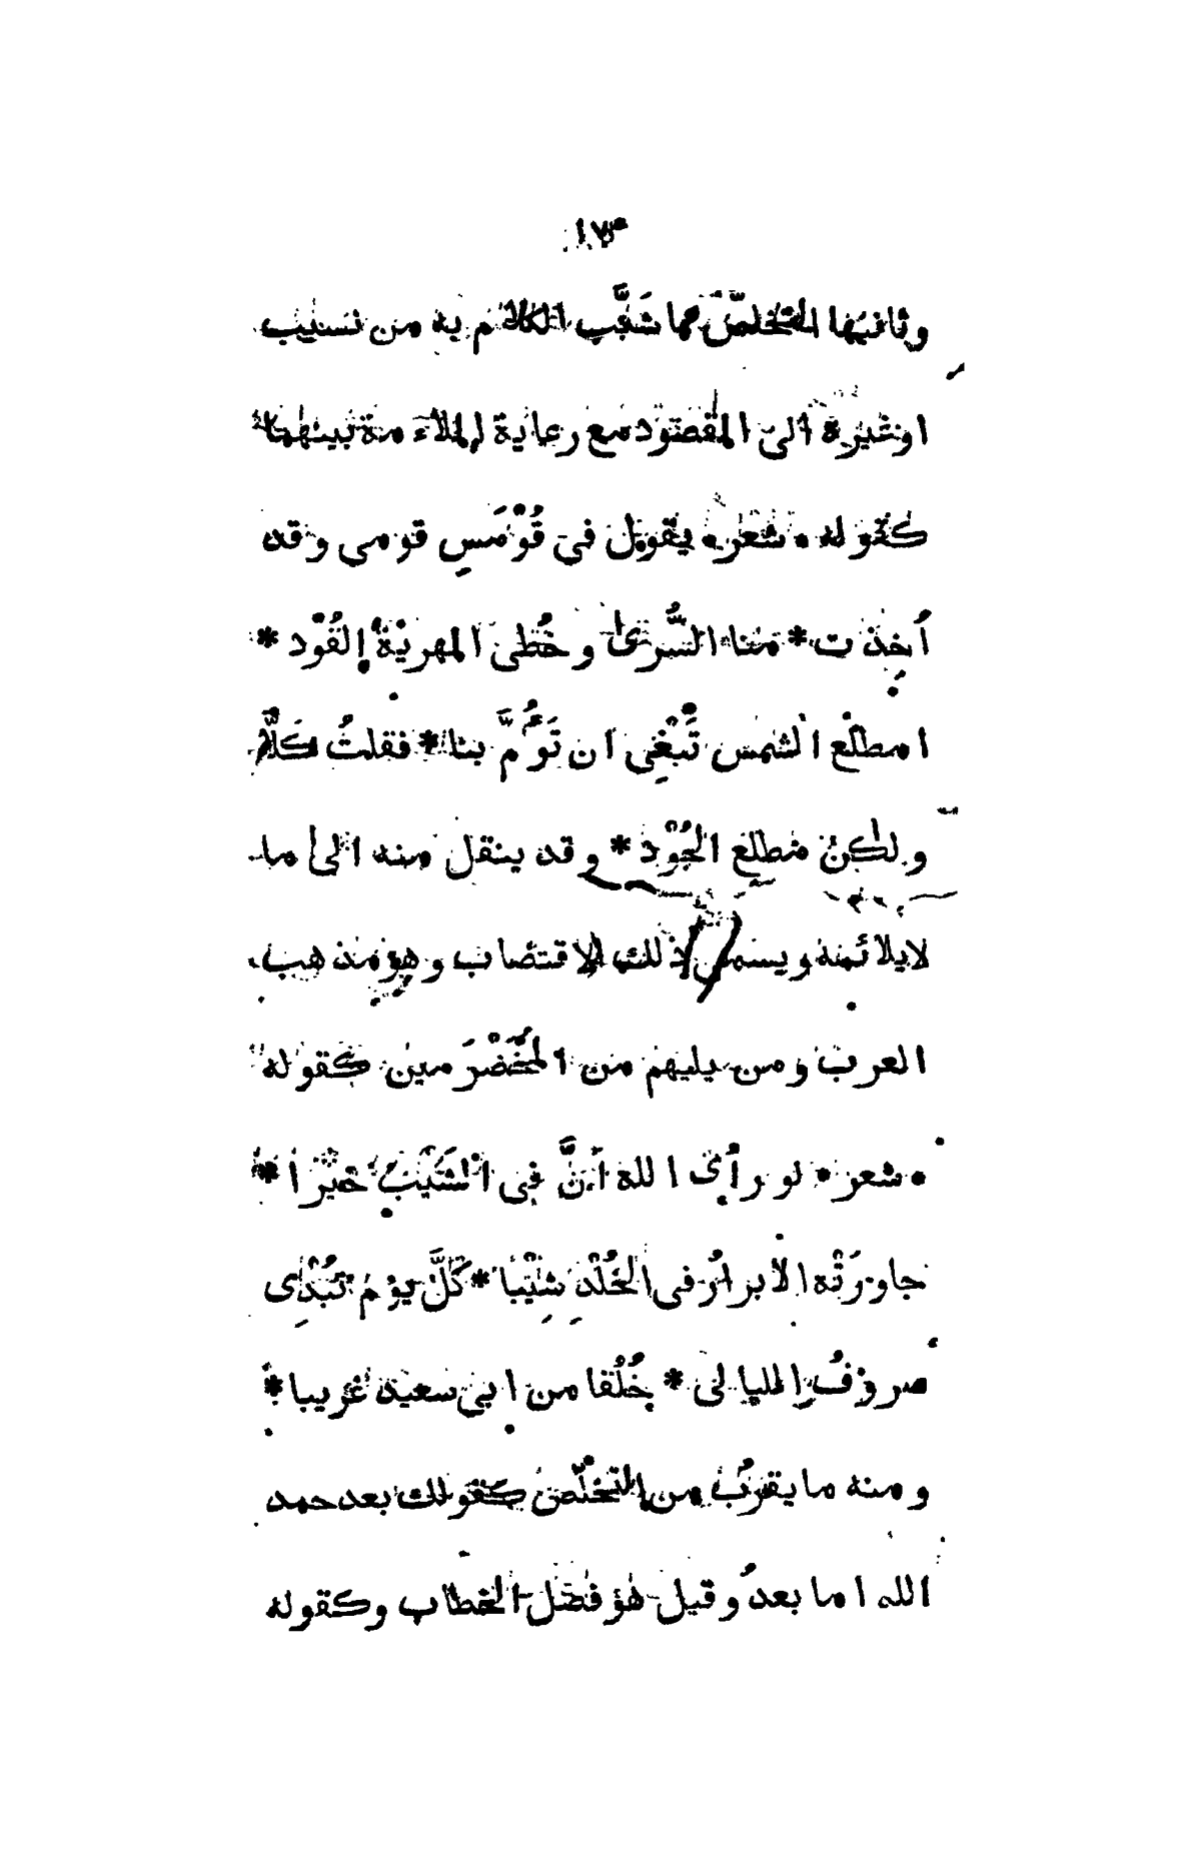 ١٧٣
وثانيها التخلّص مما شَبَّب الكلام به من نسيب
اوغيره الى المقصود مع رعاية الملاءمة بينهما
كقوله ٠ شعر ٠ يقول في قُوْمَسٍ قومى وقد
أُخِذَت * منا السُّرىٰ وخُطى المهريّةُ القُوْد *
امطلع الشمس تَبْغِى ان تَؤُمَّ بنا * فقلتُ كَلاَّ
ولٰكنْ مطلِعَ الجُوْد * وقد ينقل منه الى ما
لايلائمه ويسمى ذلك الاقتضاب وهو مذهب
العرب ومن يليهم من المُخَضْرَمين كقوله
٠ شعر ٠ لو رأى الله أنَّ فى الشَيْبِ خيرا *
جاوزَتْه الابرارُ فى الخُلْدِ شِيْبا * كلَّ يوم تُبْدِى
صروفُ الليالى * خُلُقا من ابى سعيد غريبا *
ومنه مايقرُب من التخلّص كقولك بعد حمد
الله اما بعدُ وقيل هو فصل الخطاب وكقوله